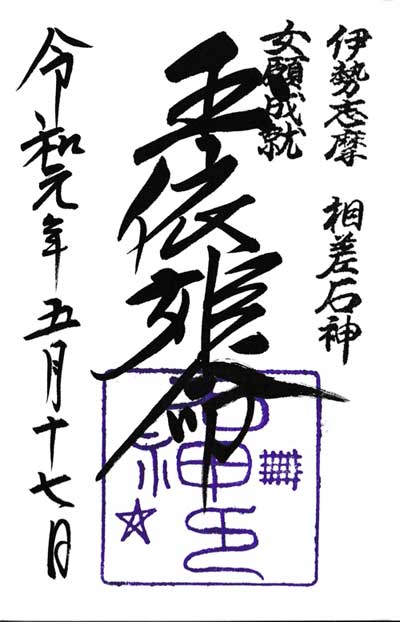 伊勢志摩 相差石神
女願成就
玉依姫命
令和元年五月十七日